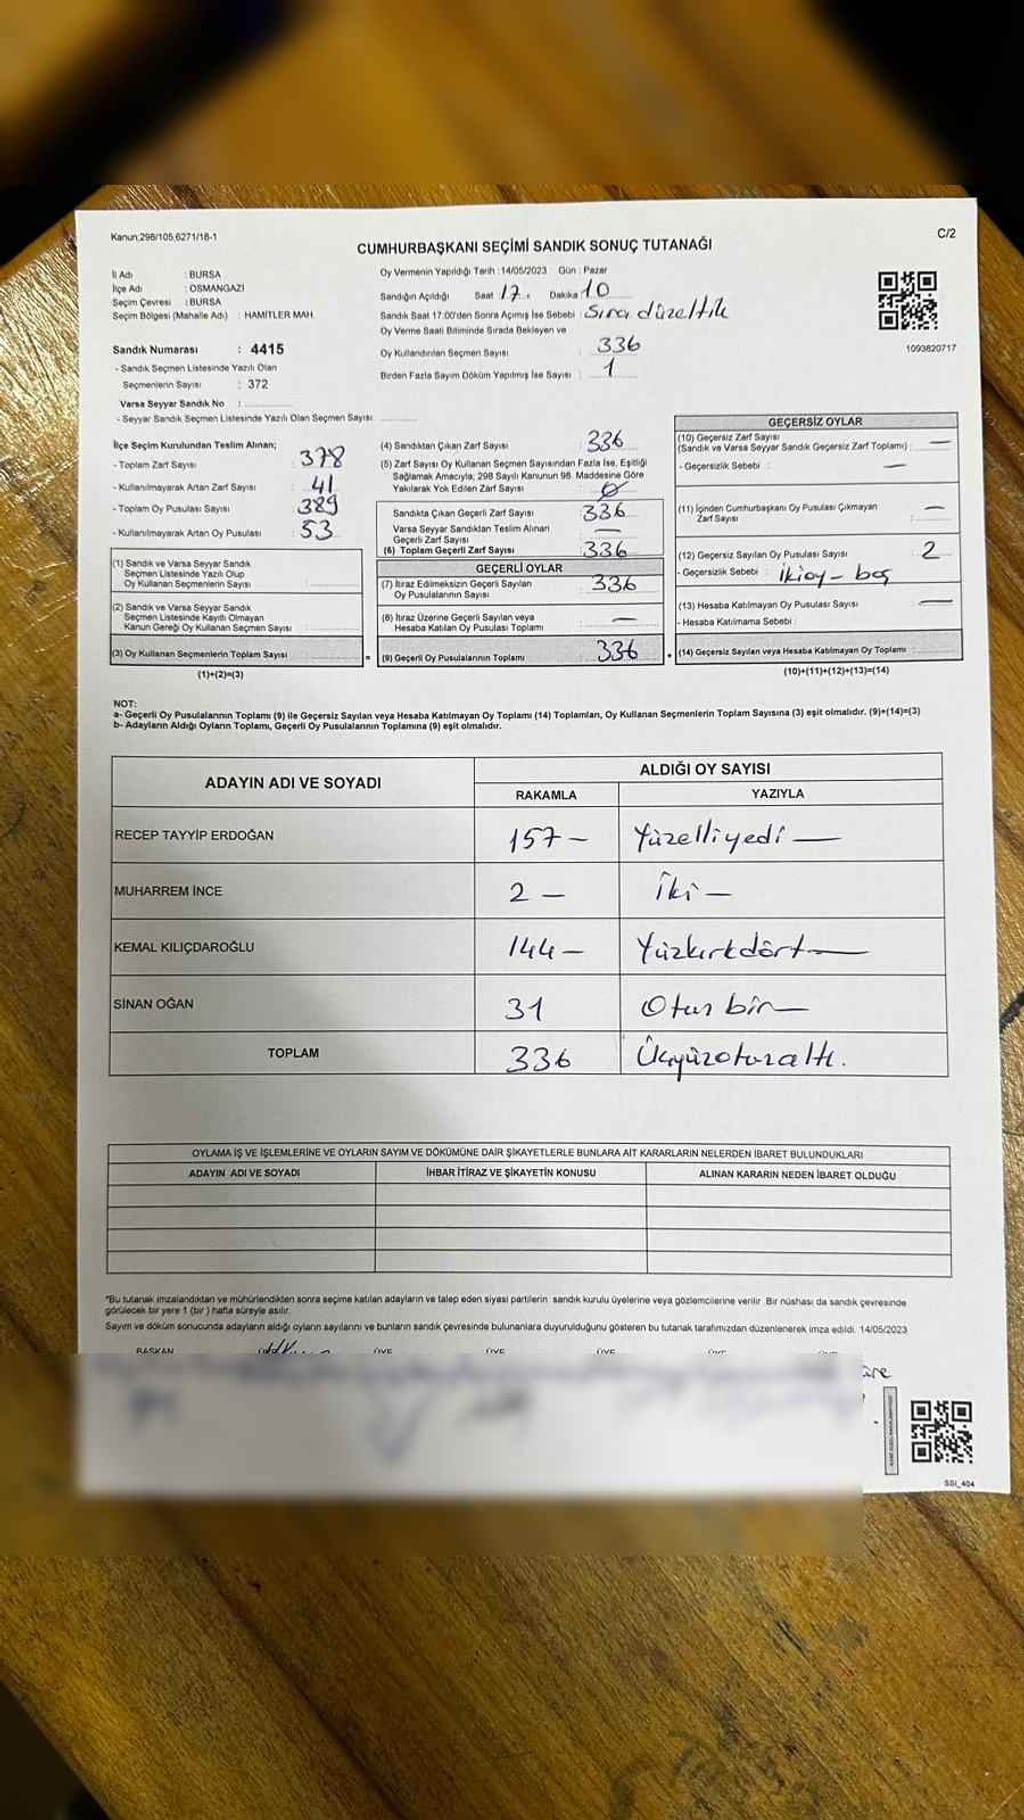 Kanun;298/105,6271/18-1
C/2
CUMHURBAŞKANI SEÇİMİ SANDIK SONUÇ TUTANAĞI
İl Adı : BURSA
İlçe Adı : OSMANGAZİ
Seçim Çevresi : BURSA
Seçim Bölgesi (Mahalle Adı) : HAMİTLER MAH.
Sandık Numarası : 4415
- Sandık Seçmen Listesinde Yazılı Olan
Seçmenlerin Sayısı : 372
Varsa Seyyar Sandık No :
- Seyyar Sandık Seçmen Listesinde Yazılı Olan Seçmen Sayısı
Oy Vermenin Yapıldığı Tarih :14/05/2023 Gün : Pazar
Sandığın Açıldığı Saat 17. Dakika 10
Sandık Saat 17:00'den Sonra Açımış İse Sebebi : Sıra düzeltik
Oy Verme Saati Bitiminde Sırada Bekleyen ve
Oy Kullandırılan Seçmen Sayısı : 336
Birden Fazla Sayım Döküm Yapılmış İse Sayısı : 1
1093820717
İlçe Seçim Kurulundan Teslim Alınan;
- Toplam Zarf Sayısı : 378
- Kullanılmayarak Artan Zarf Sayısı : 41
- Toplam Oy Pusulası Sayısı : 389
- Kullanılmayarak Artan Oy Pusulası : 53
(1) Sandık ve Varsa Seyyar Sandık
Seçmen Listesinde Yazılı Olup
Oy Kullanan Seçmenlerin Sayısı
(2) Sandık ve Varsa Seyyar Sandık
Seçmen Listesinde Kayıtlı Olmayan
Kanun Gereği Oy Kullanan Seçmen Sayısı
(3) Oy Kullanan Seçmenlerin Toplam Sayısı
(1)+(2)=(3)
(4) Sandıktan Çıkan Zarf Sayısı : 336
(5) Zarf Sayısı Oy Kullanan Seçmen Sayısından Fazla İse, Eşitliği
Sağlamak Amacıyla; 298 Sayılı Kanunun 98. Maddesine Göre
Yakılarak Yok Edilen Zarf Sayısı : 0
Sandıkta Çıkan Geçerli Zarf Sayısı : 336
Varsa Seyyar Sandıktan Teslim Alınan
Geçerli Zarf Sayısı : —
(6) Toplam Geçerli Zarf Sayısı : 336
GEÇERLİ OYLAR
(7) İtiraz Edilmeksizin Geçerli Sayılan
Oy Pusulalarının Sayısı : 336
(8) İtiraz Üzerine Geçerli Sayılan veya
Hesaba Katılan Oy Pusulası Toplamı : —
= (9) Geçerli Oy Pusulalarının Toplamı 336
GEÇERSİZ OYLAR
(10) Geçersiz Zarf Sayısı
(Sandık ve Varsa Seyyar Sandık Geçersiz Zarf Toplamı) : —
- Geçersizlik Sebebi : —
(11) İçinden Cumhurbaşkanı Oy Pusulası Çıkmayan
Zarf Sayısı —
(12) Geçersiz Sayılan Oy Pusulası Sayısı : 2
- Geçersizlik Sebebi : İki oy - boş
(13) Hesaba Katılmayan Oy Pusulası Sayısı : —
- Hesaba Katılmama Sebebi :
+ (14) Geçersiz Sayılan veya Hesaba Katılmayan Oy Toplamı :
(10)+(11)+(12)+(13)=(14)
NOT:
a- Geçerli Oy Pusulalarının Toplamı (9) ile Geçersiz Sayılan veya Hesaba Katılmayan Oy Toplamı (14) Toplamları, Oy Kullanan Seçmenlerin Toplam Sayısına (3) eşit olmalıdır. (9)+(14)=(3)
b- Adayların Aldığı Oyların Toplamı, Geçerli Oy Pusulalarının Toplamına (9) eşit olmalıdır.
ADAYIN ADI VE SOYADI
ALDIĞI OY SAYISI
RAKAMLA YAZIYLA
RECEP TAYYİP ERDOĞAN 157 – Yüzelliyedi —
MUHARREM İNCE 2 – İki —
KEMAL KILIÇDAROĞLU 144 – Yüzkırkdört —
SİNAN OĞAN 31 Otuz bir —
TOPLAM 336 Üçyüzotuzaltı.
OYLAMA İŞ VE İŞLEMLERİNE VE OYLARIN SAYIM VE DÖKÜMÜNE DAİR ŞİKAYETLERLE BUNLARA AİT KARARLARIN NELERDEN İBARET BULUNDUKLARI
ADAYIN ADI VE SOYADI İHBAR İTİRAZ VE ŞİKAYETİN KONUSU ALINAN KARARIN NEDEN İBARET OLDUĞU
*Bu tutanak imzalandıktan ve mühürlendikten sonra seçime katılan adayların ve talep eden siyasi partilerin sandık kurulu üyelerine veya gözlemcilerine verilir .Bir nüshası da sandık çevresinde
görülecek bir yere 1 (bir) hafta süreyle asılır.
Sayım ve döküm sonucunda adayların aldığı oyların sayılarını ve bunların sandık çevresinde bulunanlara duyurulduğunu gösteren bu tutanak tarafımızdan düzenlenerek imza edildi. 14/05/2023
BAŞKAN ÜYE ÜYE ÜYE
SSI_404